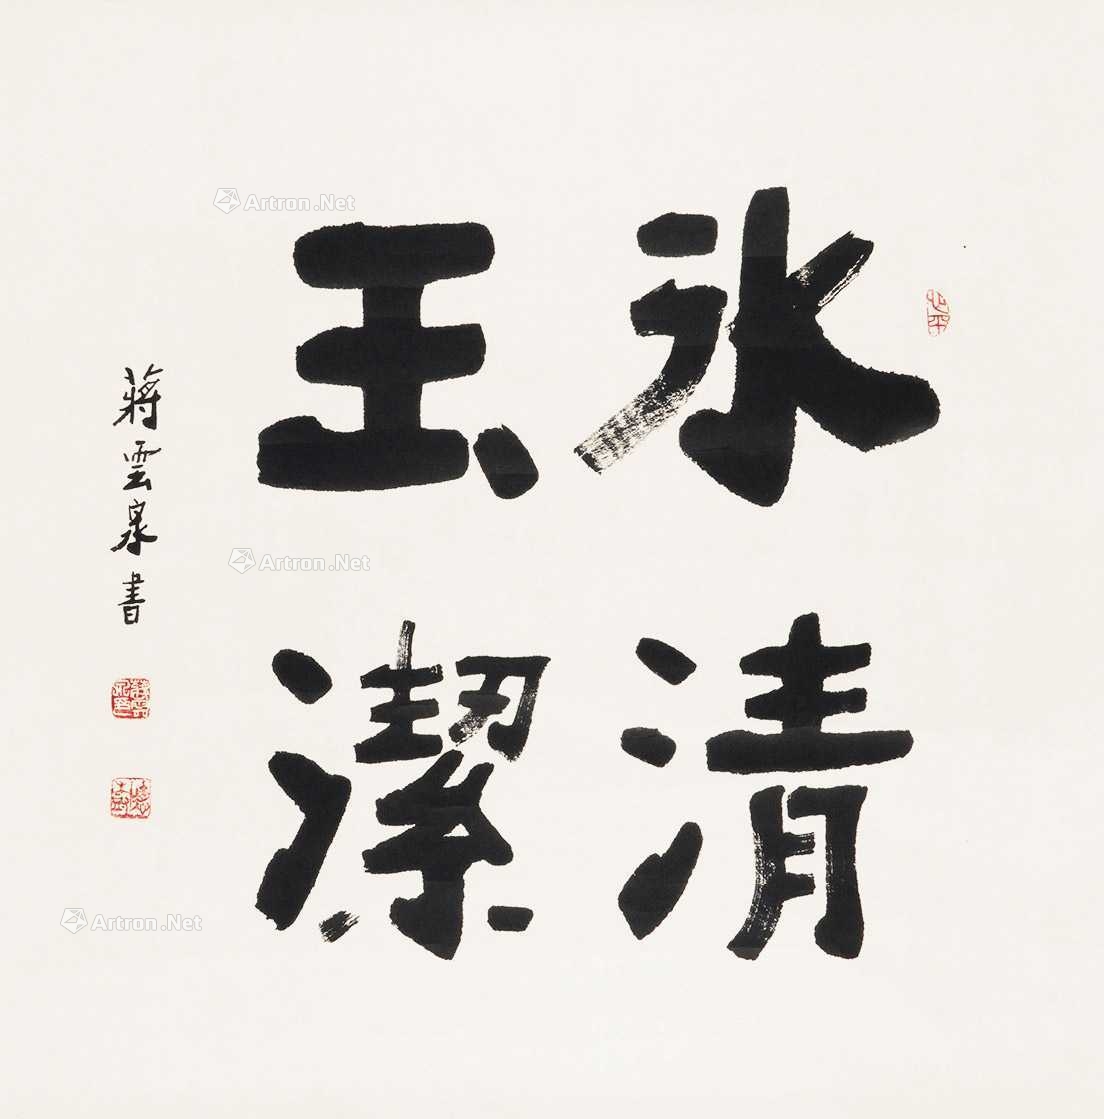 冰清
玉潔
蔣雲泉書
Artron.Net
Artron.Net
Artron.Net